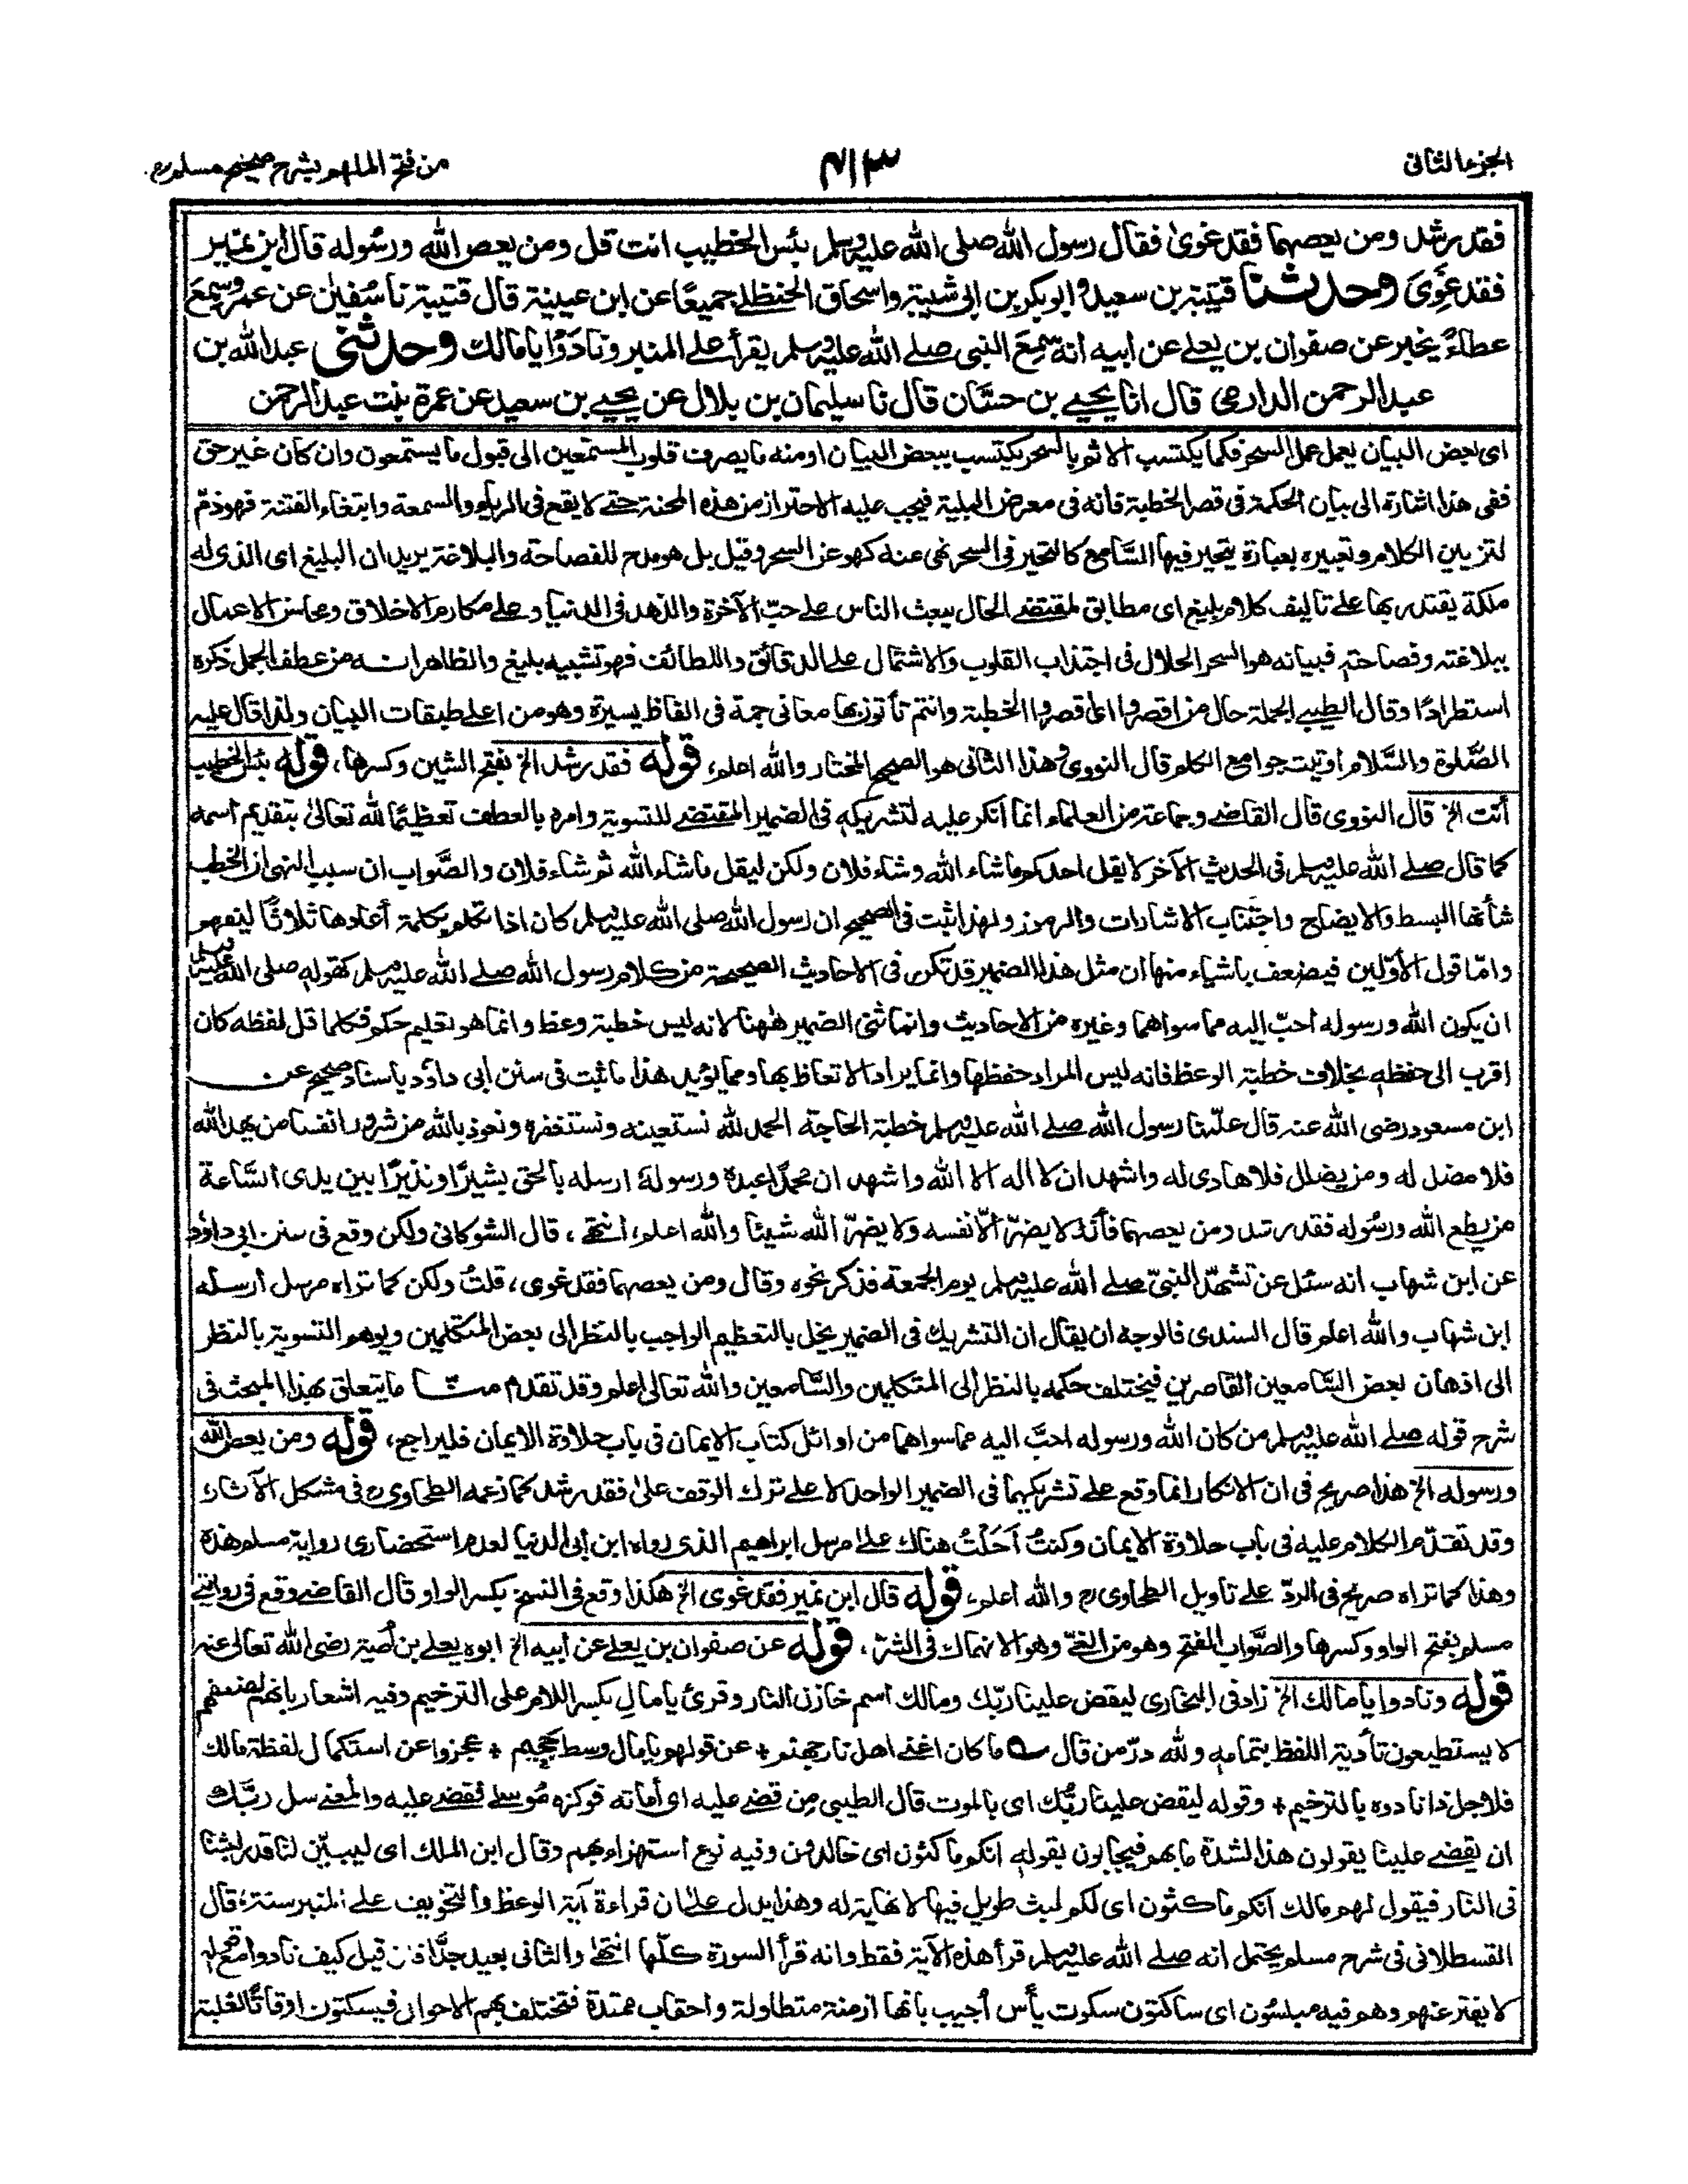 الجزء الثانى
٤١٣
من فتح الملهم بشرح صحيح مسلم
فقد رشد ومن يعصهما فقد غوىٰ فقال رسول الله صلى الله عليه وسلم بئس الخطيب انت قل ومن يعص الله ورسوله قال ابن نمير
فقد غَوِىَ وحدثنا قتيبة بن سعيد وابوبكر بن ابى شيبة واسحاق الحنظلى جميعًا عن ابن عيينة قال قتيبة نا سُفيٰن عن عمرو سمِعَ
عطاءً يخبر عن صفوان بن يعلى عن ابيه انه سَمِعَ النبى صلے الله عليه وسلم يقرأ علے المنبر ونادَوْا يا مالك وحدثنى عبد الله بن
عبد الرحمن الدارمى قال انا يحيى بن حسّان قال نا سليمان بن بلال عن يحيى بن سعيد عن عمرة بنت عبد الرحمن
اى بعض البيان يعمل عمل السحر فكما يكتسب الاثم بالسحر يكتسب ببعض البيان او منه ما يصرف قلوب المستمعين الى قبول ما يستمعون وان كان غير حق
ففى هذا اشارة الى بيان الحكمة فى قصر الخطبة فانه فى معرض البلية فيجب عليه الاحتراز من هذه المحنة حتے لا يقع فى الرياء والسمعة وابتغاء الفتنة فهو ذمّ
لتزيين الكلام وتعبيره بعبارة يتحير فيها السّامع كالتحير فى السحر نهى عنه كهو عن السحر وقيل بل هو مدح للفصاحة والبلاغة يريد ان البليغ اى الذى له
ملكة يقتدر بها علے تاليف كلام بليغ اى مطابق لمقتضے الحال يبعث الناس علے حبّ الآخرة والزهد فى الدنيا وعلے مكارم الاخلاق ومحاسن الاعمال
ببلاغته وفصاحته فبيانه هو السحر الحلال فى اجتذاب القلوب والاشتمال علے الدقائق واللطائف فهو تشبيه بليغ والظاهر انه من عطف الجمل ذكره
استطرادًا وقال الطيبى الجملة حال من اقصروا اى اقصروا الخطبة وانتم تأتون بها معانى جمة فى الفاظ يسيرة وهو من اعلے طبقات البيان ولذا قال عليه
الصّلوة والسّلام اوتيت جوامع الكلم قال النووى وهذا الثانى هو الصحيح المختار والله اعلم، قوله فقد رشد الخ بفتح الشين وكسرها، قوله بئس الخطيب
أنت الخ قال النووى قال القاضے وجماعة من العلماء انما انكر عليه لتشريكه فى الضمير المقتضے للتسوية وامره بالعطف تعظيمًا لله تعالىٰ بتقديم اسمه
كما قال صلے الله عليه وسلم فى الحديث الآخر لا يقل احدكم ما شاء الله وشاء فلان ولكن ليقل ما شاء الله ثم شاء فلان والصّواب ان سبب النهى ان الخطب
شأنها البسط والايضاح واجتناب الاشارات والرموز ولهذا ثبت فى الصحيح ان رسول الله صلى الله عليه وسلم كان اذا تكلم بكلمة أعادها ثلاثًا ليفهم
وامّا قول الأوّلين فيضعف باشياء منها ان مثل هذا الضمير قد تكرر فى الاحاديث الصحيحة من كلام رسول الله صلے الله عليه وسلم كقوله صلى الله عليه وسلم
ان يكون الله ورسوله احبّ اليه مما سواهما وغيره من الاحاديث وانما ثنى الضمير هٰهنا لانه ليس خطبة وعظ وانما هو تعليم حكم فكلما قل لفظه كان
اقرب الى حفظه بخلاف خطبة الوعظ فانه ليس المراد حفظها وانما يراد الاتعاظ بها ومما يؤيد هذا ما ثبت فى سنن ابى داؤد باسناد صحيح عن
ابن مسعود رضى الله عنه قال علّمنا رسول الله صلے الله عليه وسلم خطبة الحاجة الحمد لله نستعينه ونستغفره ونعوذ بالله من شرور انفسنا من يهد الله
فلا مضل له ومن يضلل فلا هادى له واشهد ان لا اله الا الله واشهد ان محمدًا عبده ورسوله ارسله بالحق بشيرًا ونذيرًا بين يدى السّاعة
من يطع الله ورسُوله فقد رشد ومن يعصهما فأنه لا يضرّ الّا نفسه ولا يضرّ الله شيئا والله اعلم، انتهى، قال الشوكانى ولكن وقع فى سنن ابى داؤد
عن ابن شهاب انه سئل عن تشهّد النبىّ صلے الله عليه وسلم يوم الجمعة فذكر نحوه وقال ومن يعصهما فقد غوى، قلتُ ولكن كما تراه مرسل أرسله
ابن شهاب والله اعلم قال السندى فالوجه ان يقال ان التشريك فى الضمير يخل بالتعظيم الواجب بالنظر الى بعض المتكلمين ويوهم التسوية بالنظر
الى اذهان بعض السّامعين القاصرين فيختلف حكمه بالنظر الى المتكلمين والسّامعين والله تعالى اعلم وقد تقدم منّا ما يتعلق بهذا المبحث فى
شرح قوله صلے الله عليه وسلم من كان الله ورسوله احبّ اليه مما سواهما من اوائل كتاب الايمان فى باب حلاوة الايمان فليراجع، قوله ومن يعص الله
ورسوله الخ هذا صريح فى ان الانكار انما وقع علے تشريكهما فى الضمير الواحد لا علے ترك الوقف علىٰ فقد رشد كما زعمه الطحاوىؒ فى مشكل الآثار
وقد تقدّم الكلام عليه فى باب حلاوة الايمان وكنتُ أَحَلْتُ هناك علىٰ مرسل ابراهيم الذى رواه ابن ابى الدنيا لعدم استحضارى رواية مسلم هذه
وهذا كما تراه صريح فى الردّ علے تاويل الطحاوىؒ والله اعلم، قوله قال ابن نمير فقد غوى الخ هكذا وقع فى النسخ بكسر الواو قال القاضے وقع فى روايتى
مسلم بفتح الواو وكسرها والصّواب الفتح وهو من الغىّ وهو الانهماك فى الشرّ، قوله عن صفوان بن يعلے عن أبيه الخ ابوه يعلے بن اُميّة رضى الله تعالى عنه
قوله ونادوا يا مالك الخ زاد فى البخارى ليقض علينا ربّك ومالك اسم خازن النار وقرئ يا مالِ بكسر اللام على الترخيم وفيه اشعار بانهم لضعفهم
لا يستطيعون تأدية اللفظ بتمامه ولله درّ من قال ما كان اغنى اهل نار جهنم + عن قولهم يا مال وسط جحيم + عجزوا عن استكمال لفظة مالك
فلاجل ذا نادوه بالترخيم + وقوله ليقض علينا ربّك اى بالموت قال الطيبى مِن قضے عليه اى أماته فوكزه مُوسےٰ فقضے عليه والمعنے سل ربّك
ان يقضے علينا يقولون هذا لشدة ما بهم فيجابون بقوله انكم ماكثون اى خالدون وفيه نوع استهزاء بهم وقال ابن الملك اى ليبيّن لنا قدر لبثنا
فى النار فيقول لهم مالك انكم ماكثون اى لكم لبث طويل فيها لا نهاية له وهذا يدل علىٰ ان قراءة آية الوعظ والتخويف علے المنبر سنة، قال
القسطلانى فى شرح مسلم يحتمل انه صلے الله عليه وسلم قرأ هذه الآية فقط وانه قرأ السورة كلّها انتهىٰ والثانى بعيد جدًّا فان قيل كيف نادوا مع قوله
لا يفتر عنهم وهم فيه مبلسُون اى ساكتون سكوت يأس اُجيب بانها ازمنة متطاولة واحقاب ممتدة فتختلف بهم الاحوال فيسكتون اوقاتًا لغلبة